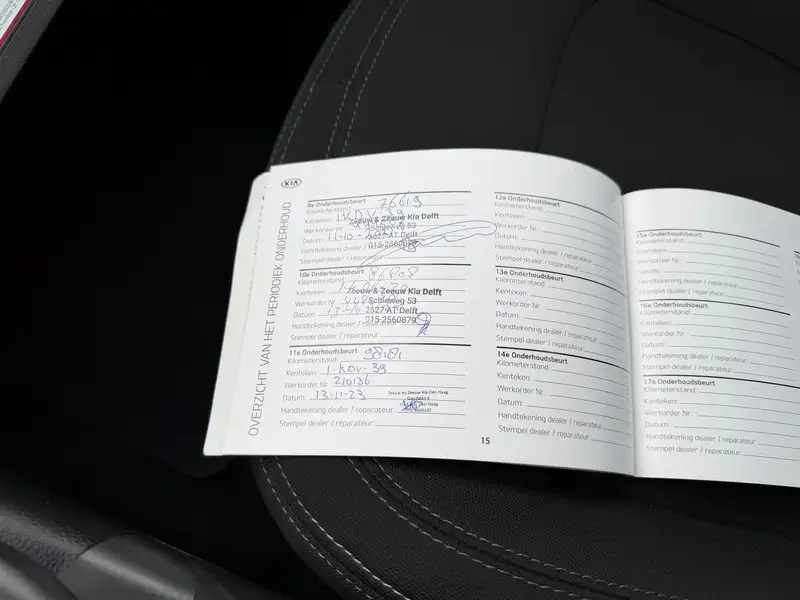 KIA
OVERZICHT VAN HET PERIODIEK ONDERHOUD
9e Onderhoudsbeurt
Kilometerstand: 76619
Kenteken:
Zeeuw & Zeeuw Kia Delft
Werkorder Nr. Schieweg 53
Datum: 11-10- 2627 AT Delft
Handtekening dealer 015-2560879
Stempel dealer / reparateur:
10e Onderhoudsbeurt
Kilometerstand: 86808
Kenteken: Zeeuw & Zeeuw Kia Delft
Werkorder Nr. Schieweg 53
Datum: 2627 AT Delft
Handtekening dealer / 015-2560879
Stempel dealer / reparateur:
11e Onderhoudsbeurt
Kilometerstand:
Kenteken: 1-KDV-39
Werkorder Nr: 210136
Zeeuw en Zeeuw Kia Den Haag
Datum: 13-11-23
Handtekening dealer / reparateur:
Stempel dealer / reparateur:
15
12e Onderhoudsbeurt
Kilometerstand:
Kenteken:
Werkorder Nr:
Datum:
Handtekening dealer / reparateur:
Stempel dealer / reparateur:
13e Onderhoudsbeurt
Kilometerstand:
Kenteken:
Werkorder Nr:
Datum:
Handtekening dealer / reparateur:
Stempel dealer / reparateur:
14e Onderhoudsbeurt
Kilometerstand:
Kenteken:
Werkorder Nr:
Datum:
Handtekening dealer / reparateur:
Stempel dealer / reparateur:
15e Onderhoudsbeurt
Kilometerstand:
Kenteken:
Werkorder Nr:
Datum:
Handtekening dealer / reparateur:
Stempel dealer / reparateur:
16e Onderhoudsbeurt
Kilometerstand:
Kenteken:
Werkorder Nr:
Datum:
Handtekening dealer / reparateur:
Stempel dealer / reparateur:
17e Onderhoudsbeurt
Kilometerstand:
Kenteken:
Werkorder Nr:
Datum:
Handtekening dealer / reparateur:
Stempel dealer / reparateur: